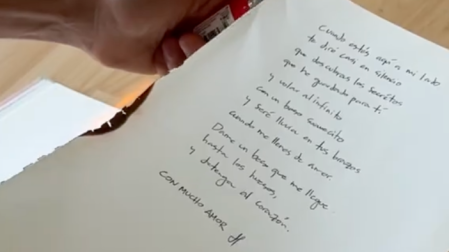 Cuando estés aquí a mi lado
te diré casi en silencio
que descubras los secretos
que he guardado para ti
y volar al infinito
con un beso
y seré lluvia en tus brazos
cuando me llenes de amor
Dame un beso que me llegue
hasta los huesos,
y detenga al corazón.
CON MUCHO AMOR